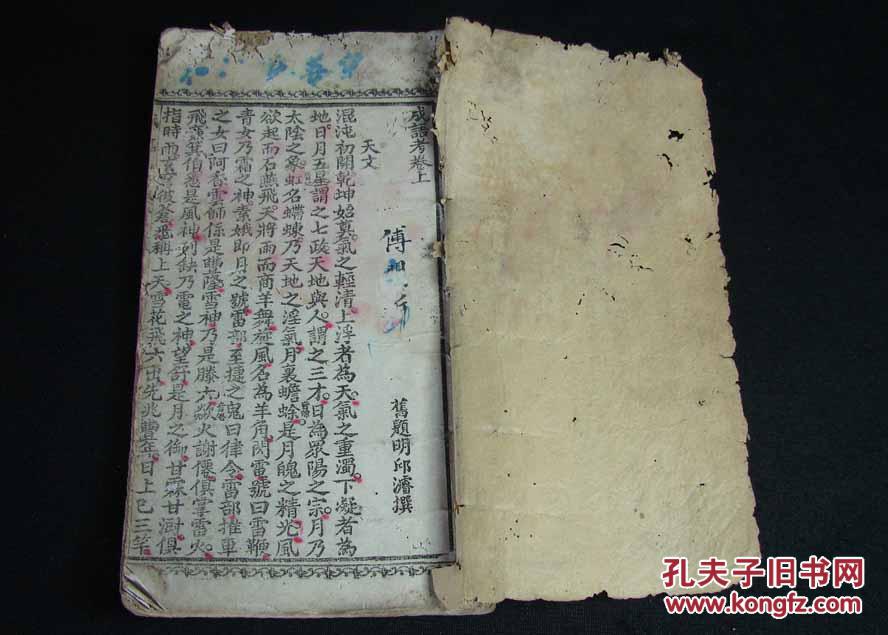 成語考卷上
舊題明邱濬撰
傅
天文
混沌初開乾坤始奠氣之輕清上浮者為天氣之重濁下凝者為
地日月五星謂之七政天地與人謂之三才日為眾陽之宗月乃
太陰之象虹名螮蝀乃天地之淫氣月裏蟾蜍是月魄之精光風
欲起而石燕飛天將雨而商羊舞旋風名為羊角閃電號曰雷鞭
青女乃霜之神素娥即月之號雷部至捷之鬼曰律令雷部推車
之女曰阿香雲師係是豐隆雪神乃是滕六歘火謝僊俱掌雷火
飛廉箕伯悉是風神列缺乃電之神望舒是月之御甘霖甘澍俱
指時雨玄穹彼蒼悉稱上天雪花飛六出先兆豐年日上已三竿
孔夫子旧书网
www.kongfz.com